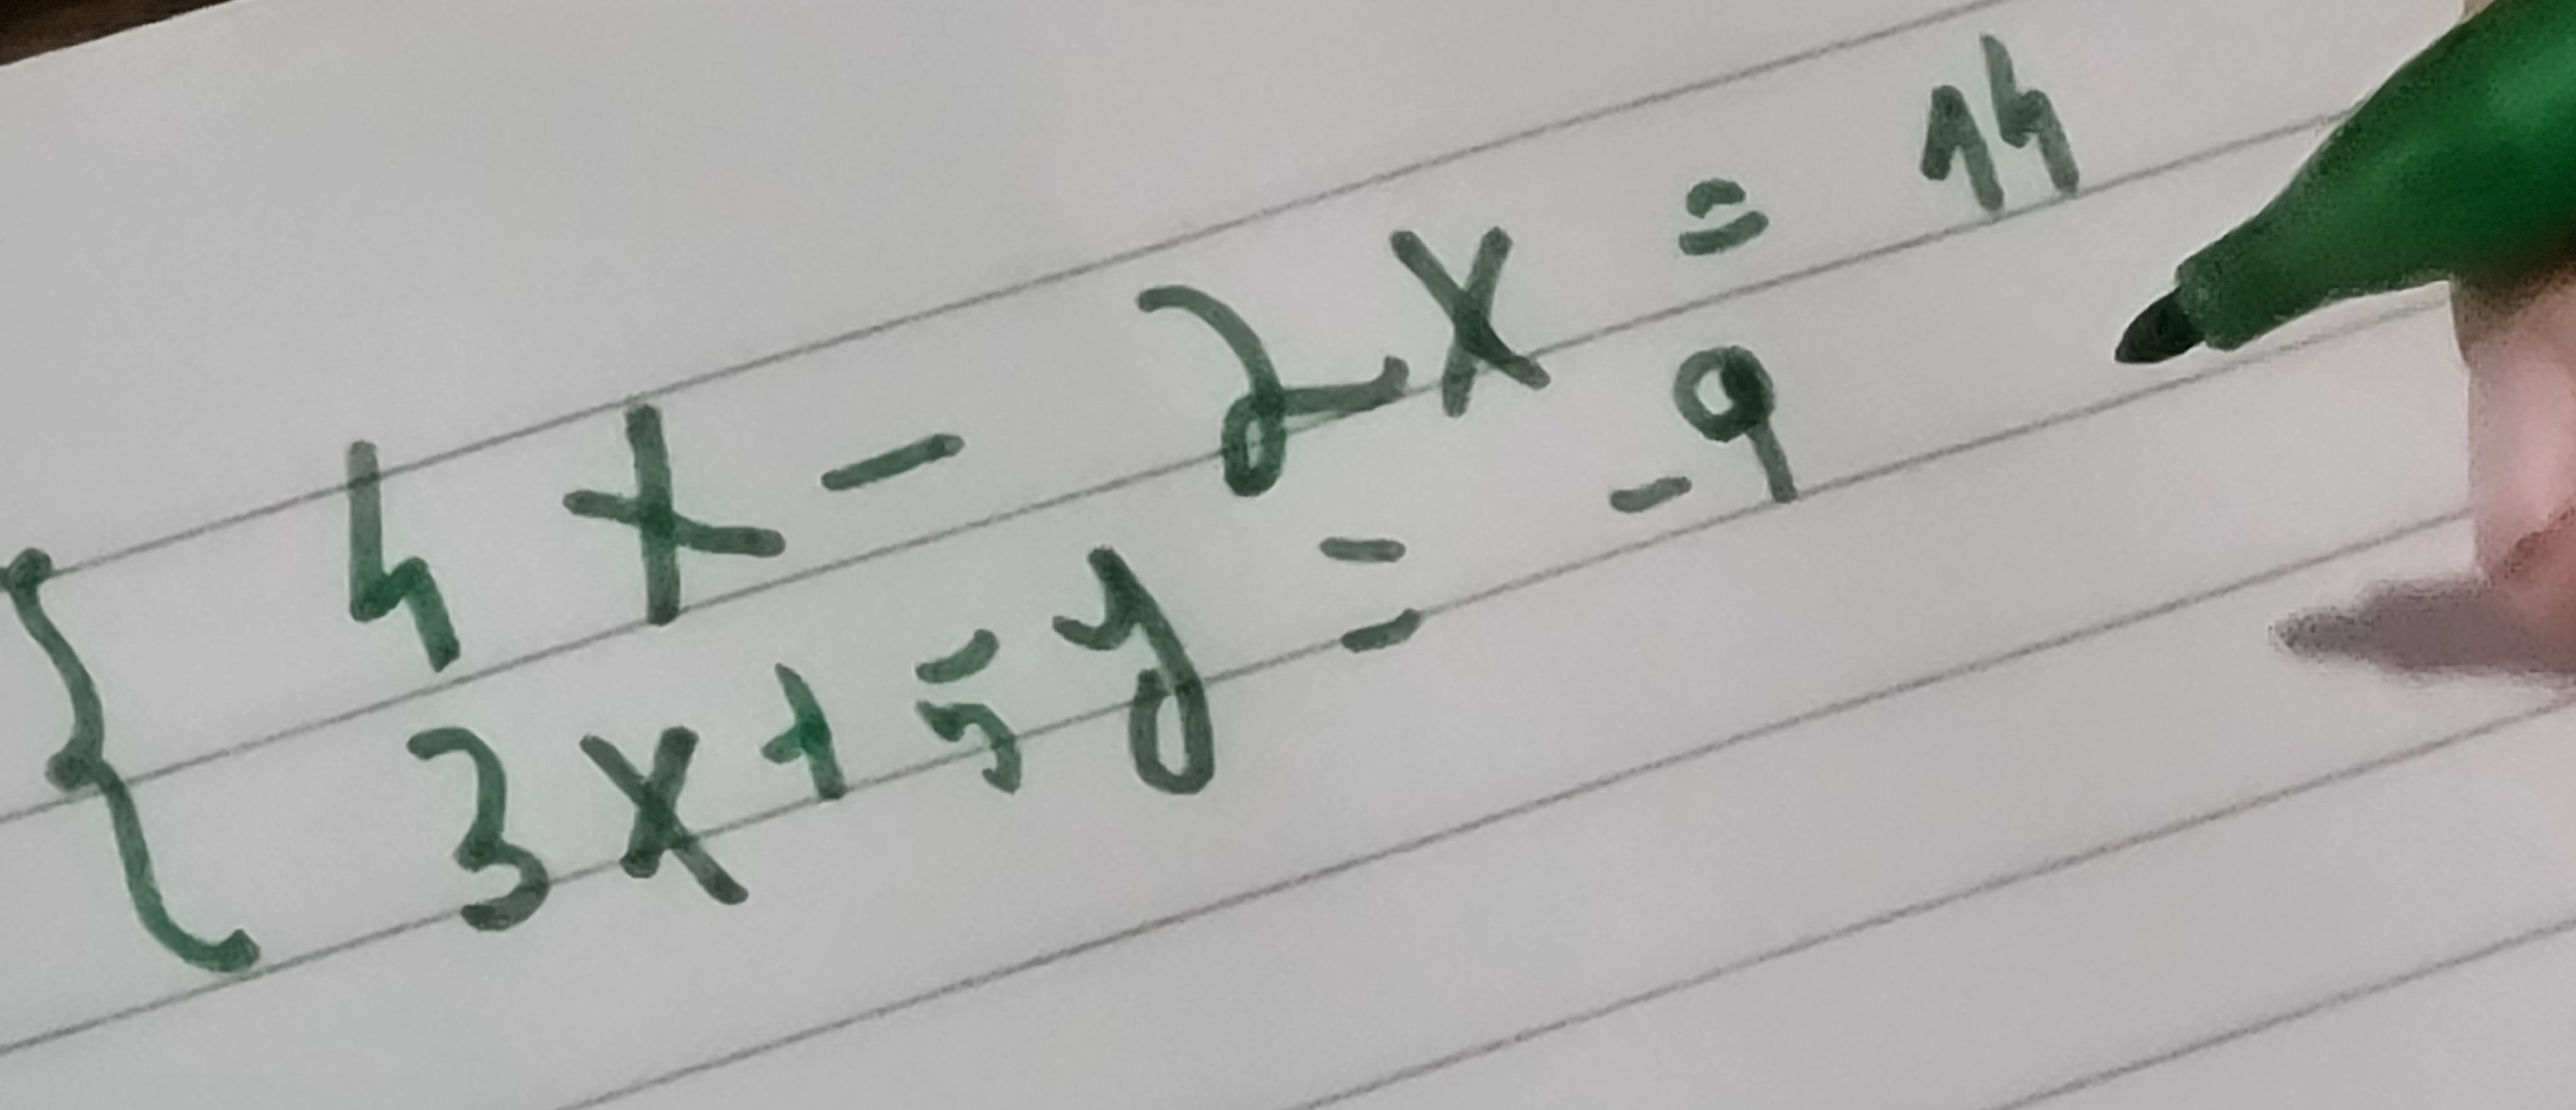 4x - 2x = 14
3x + 5y = -9